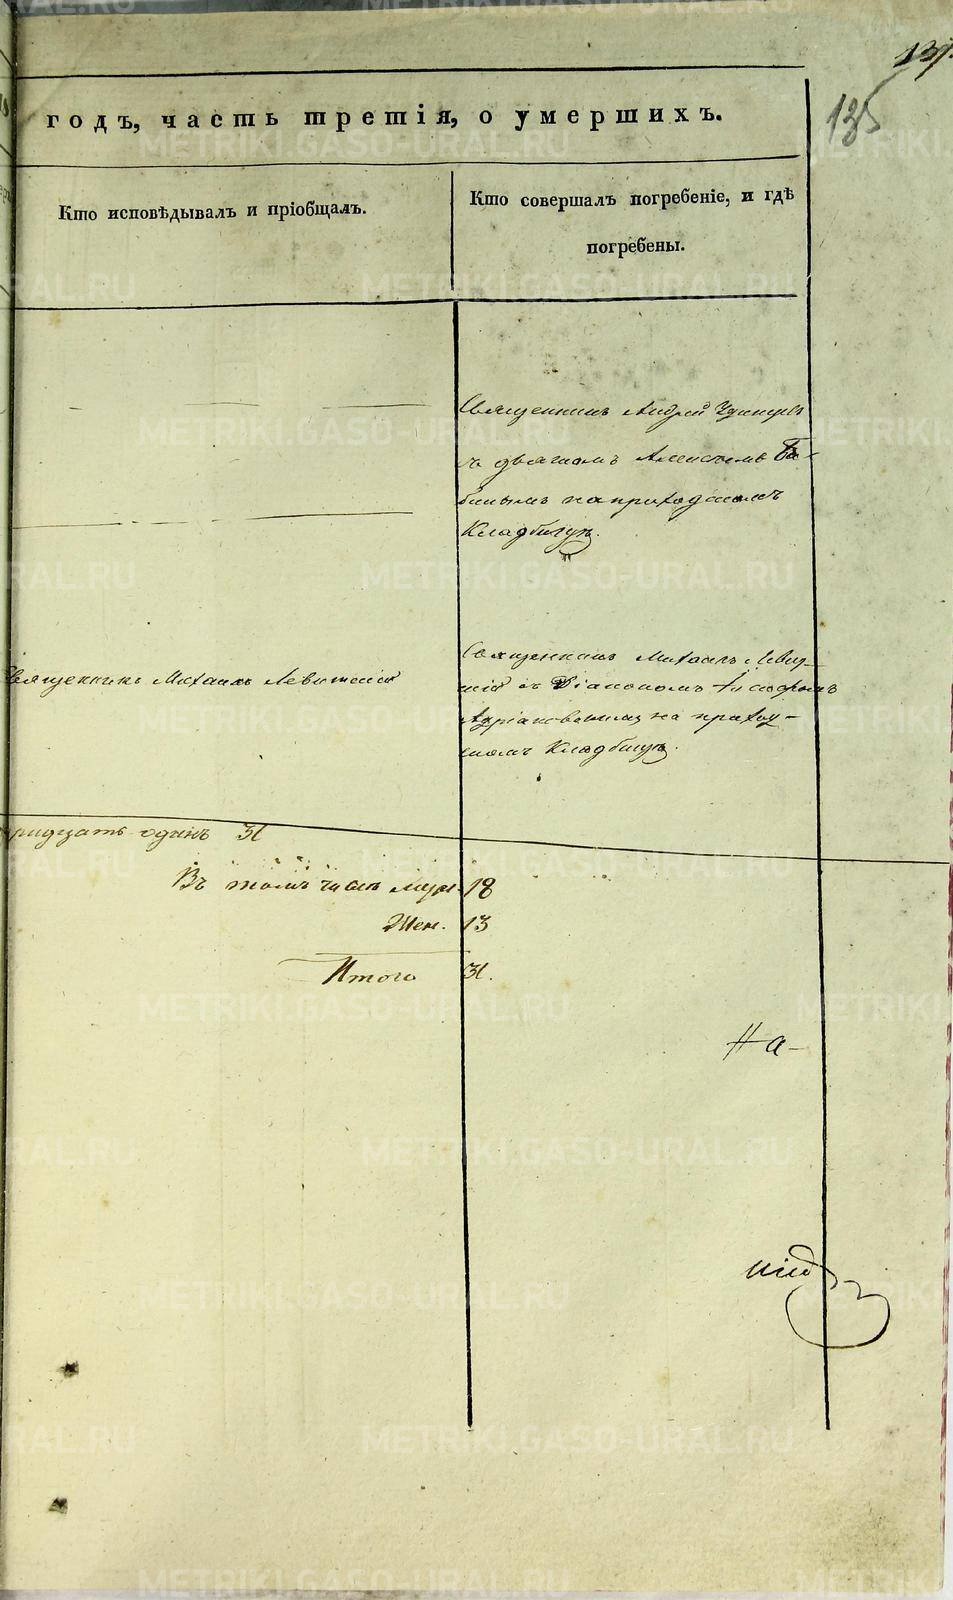 135
годъ, часть третія, о умершихъ.
Кто исповѣдывалъ и пріобщалъ.
Кто совершалъ погребеніе, и гдѣ
погребены.
Священникъ Андрей
съ дьячкомъ Алексѣемъ Ба-
биным на приходскомъ
Кладбищѣ.
Священникъ Михаилъ Левитскій
Священникъ Михаилъ Левит-
скій съ Діакономъ
на приход-
скомъ Кладбищѣ.
тридцать одинъ 31
Въ томъ числѣ муж. 18
Жен. 13
Итого 31.
На-
METRIKI.GASO-URAL.RU